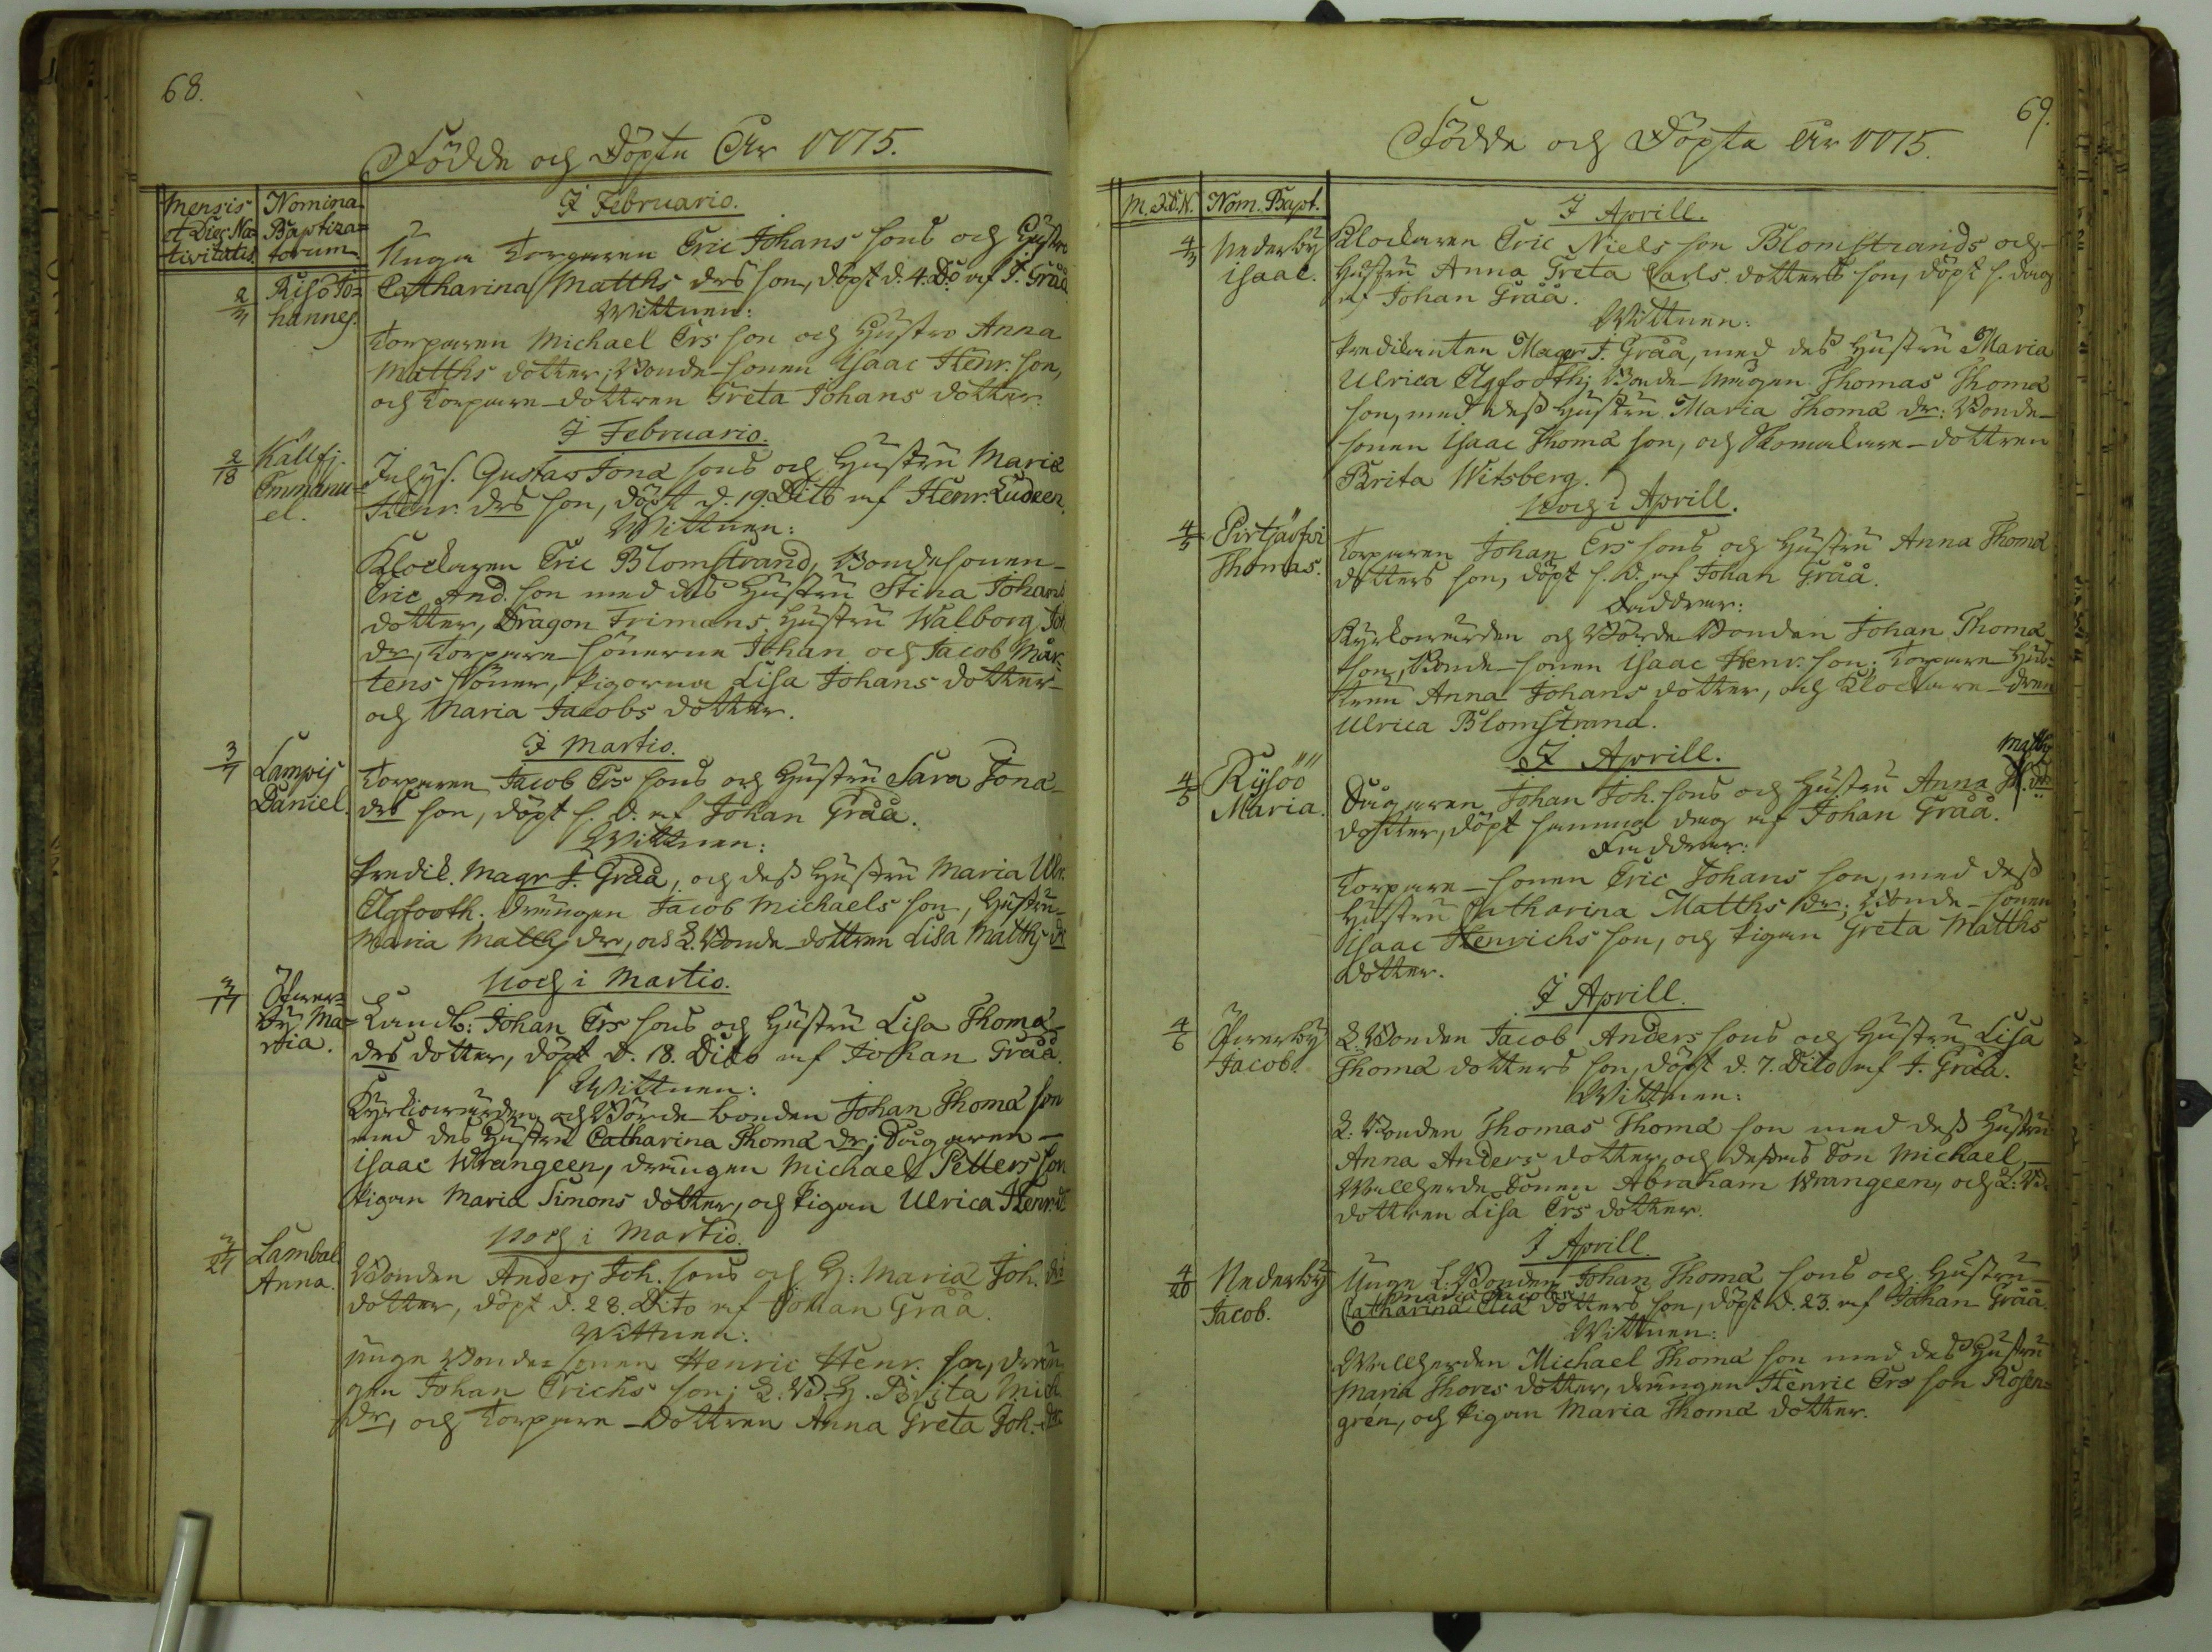 68.
Födde och Döpte År 1775.
Mensis et Dies Nativitatis
Nomina Baptizatorum
I Februario.
2/4 Risö Johannes.
Unga Torparen Eric Johans sons och Hustru
Catharina Matths drs son, döpt d. 4. Do af J. Gråå.
Wittnen:
Torparen Michael Ers son och Hustru Anna
Matths dotter; Bonde-sonen Isaac Henr. son,
och Torpare-dottren Greta Johans dotter.
I Februario.
2/18 Källfj. Emmanuel.
Inhys. Gustaf Jona sons och Hustru Maria
Henr. drs son, döpt d. 19. Dito af Henr. Ludeen.
Wittnen:
Klockaren Eric Blomstrand, Bondesonen
Eric And. son med des Hustru Stina Johans
dotter, Dragon Frimans Hustru Walborg Joh.
dr, Torpare sönerne Johan och Jacob Mår-
tens söner, Pigorna Lisa Johans dotter
och Maria Jacobs dotter.
I Martio.
3/7 Lampis Daniel.
Torparen Jacob Ers sons och Hustru Sara Jona
drs son, döpt s. d. af Johan Gråå.
Wittnen:
Predik. Magr J. Gråå, och dess Hustru Maria Ulr.
Agfooth. Drängen Jacob Michaels son, Hustru
Maria Matths dr, och L. Bonde-dottren Lisa Matths dr
Noch i Martio.
3/17 Öfwerby Maria.
Landb: Johan Ers sons och Hustru Lisa Thoma
drs dotter, döpt d. 18. Dito af Johan Gråå.
Wittnen:
Kyrkiowärden och Börde-bonden Johan Thoma son
med des Hustru Catharina Thoma dr; Sågaren
Isaac Wrangeen, drängen Michael Petters son
Pigan Maria Simons dotter, och Pigan Ulrica Henr. dr
Noch i Martio.
3/27 Lambal Anna.
Bonden Anders Joh. sons och H: Maria Joh. drs
dotter, döpt d. 28. Dito af Johan Gråå.
Wittnen:
Unge Bonde-sonen Henric Henr. son, drän-
gen Johan Erichs son; L. B. H. Brita Mich.
dr, och Torpare-Dottren Anna Greta Joh. dr
69.
Födde och Döpta År 1775.
M. D. N.
Nom. Bapt.
I Aprill.
4/3 Nederby Isaac.
Klockaren Eric Niels son Blomstrands och
Hustru Anna Greta Carls dotters son, döpt s. dag
af Johan Gråå.
Wittnen:
Predikanten Magr J. Gråå, med des Hustru Maria
Ulrica Agfooth; Bonde-mågen Thomas Thoma
son, med dess Hustru Maria Thoma dr: Bonde-
sonen Isaac Thoma son, och Skomakare-dottren
Brita Witsberg.
Noch i Aprill.
4/5 Pirtjäfwi Thomas.
Torparen Johan Ers sons och Hustru Anna Thoma
dotters son, döpt s. d. af Johan Gråå.
Faddrar:
Kyrkowärden och Börde Bonden Johan Thoma
son, Bonde-sonen Isaac Henr. son; Torpare Hus-
trun Anna Johans dotter, och Klockare-dren
Ulrica Blomstrand.
I Aprill.
4/5 Rysöö Maria.
Matths
Sågaren Johan Joh. sons och Hustru Anna drs
dotter, döpt samma dag af Johan Gråå.
Faddrar:
Torpare-sonen Eric Johans son, med dess
Hustru Catharina Matths dr; Bonde-sonen
Isaac Henrichs son, och Pigan Greta Matths
dotter.
I Aprill.
4/6 Öfwerby Jacob.
L. Bonden Jacob Anders sons och Hustru Lisa
Thoma dotters son, döpt d. 7. Dito af J. Gråå.
Wittnen:
L: Bonden Thomas Thoma son med dess Hustru
Anna Anders dotter och deras Son Michael,
Wallherde Sonen Abraham Wrangeen, och L: B.
dottren Lisa Ers dotter.
I Aprill.
4/20 Nederby Jacob.
Unge L. Bonden Johan Thoma sons och Hustru
Maria Jacobs
Catharina Elia dotters son, döpt d. 23. af Johan Gråå.
Wittnen:
Wallherden Michael Thoma son med des Hustru
Maria Thores dotter, drängen Henric Ers son Rosen-
grén, och Pigan Maria Thoma dotter.